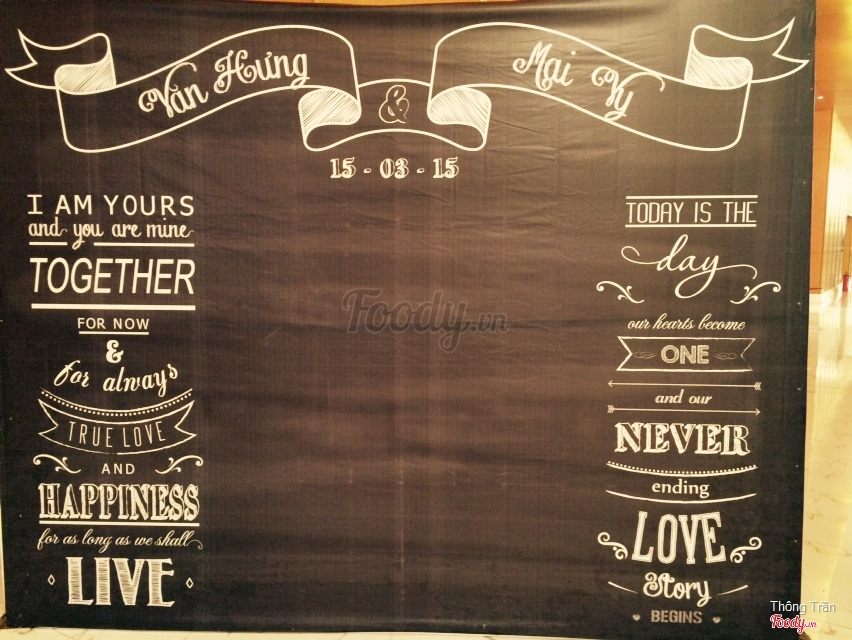 Văn Hưng
&
Mai Vy
15 - 03 - 15
I AM YOURS
and you are mine
TOGETHER
FOR NOW
&
for always
TRUE LOVE
AND
HAPPINESS
for as long as we shall
LIVE
TODAY IS THE
day
our hearts become
ONE
and our
NEVER
ending
LOVE
Story
BEGINS
Foody.vn
Thông Trần
Foody.vn